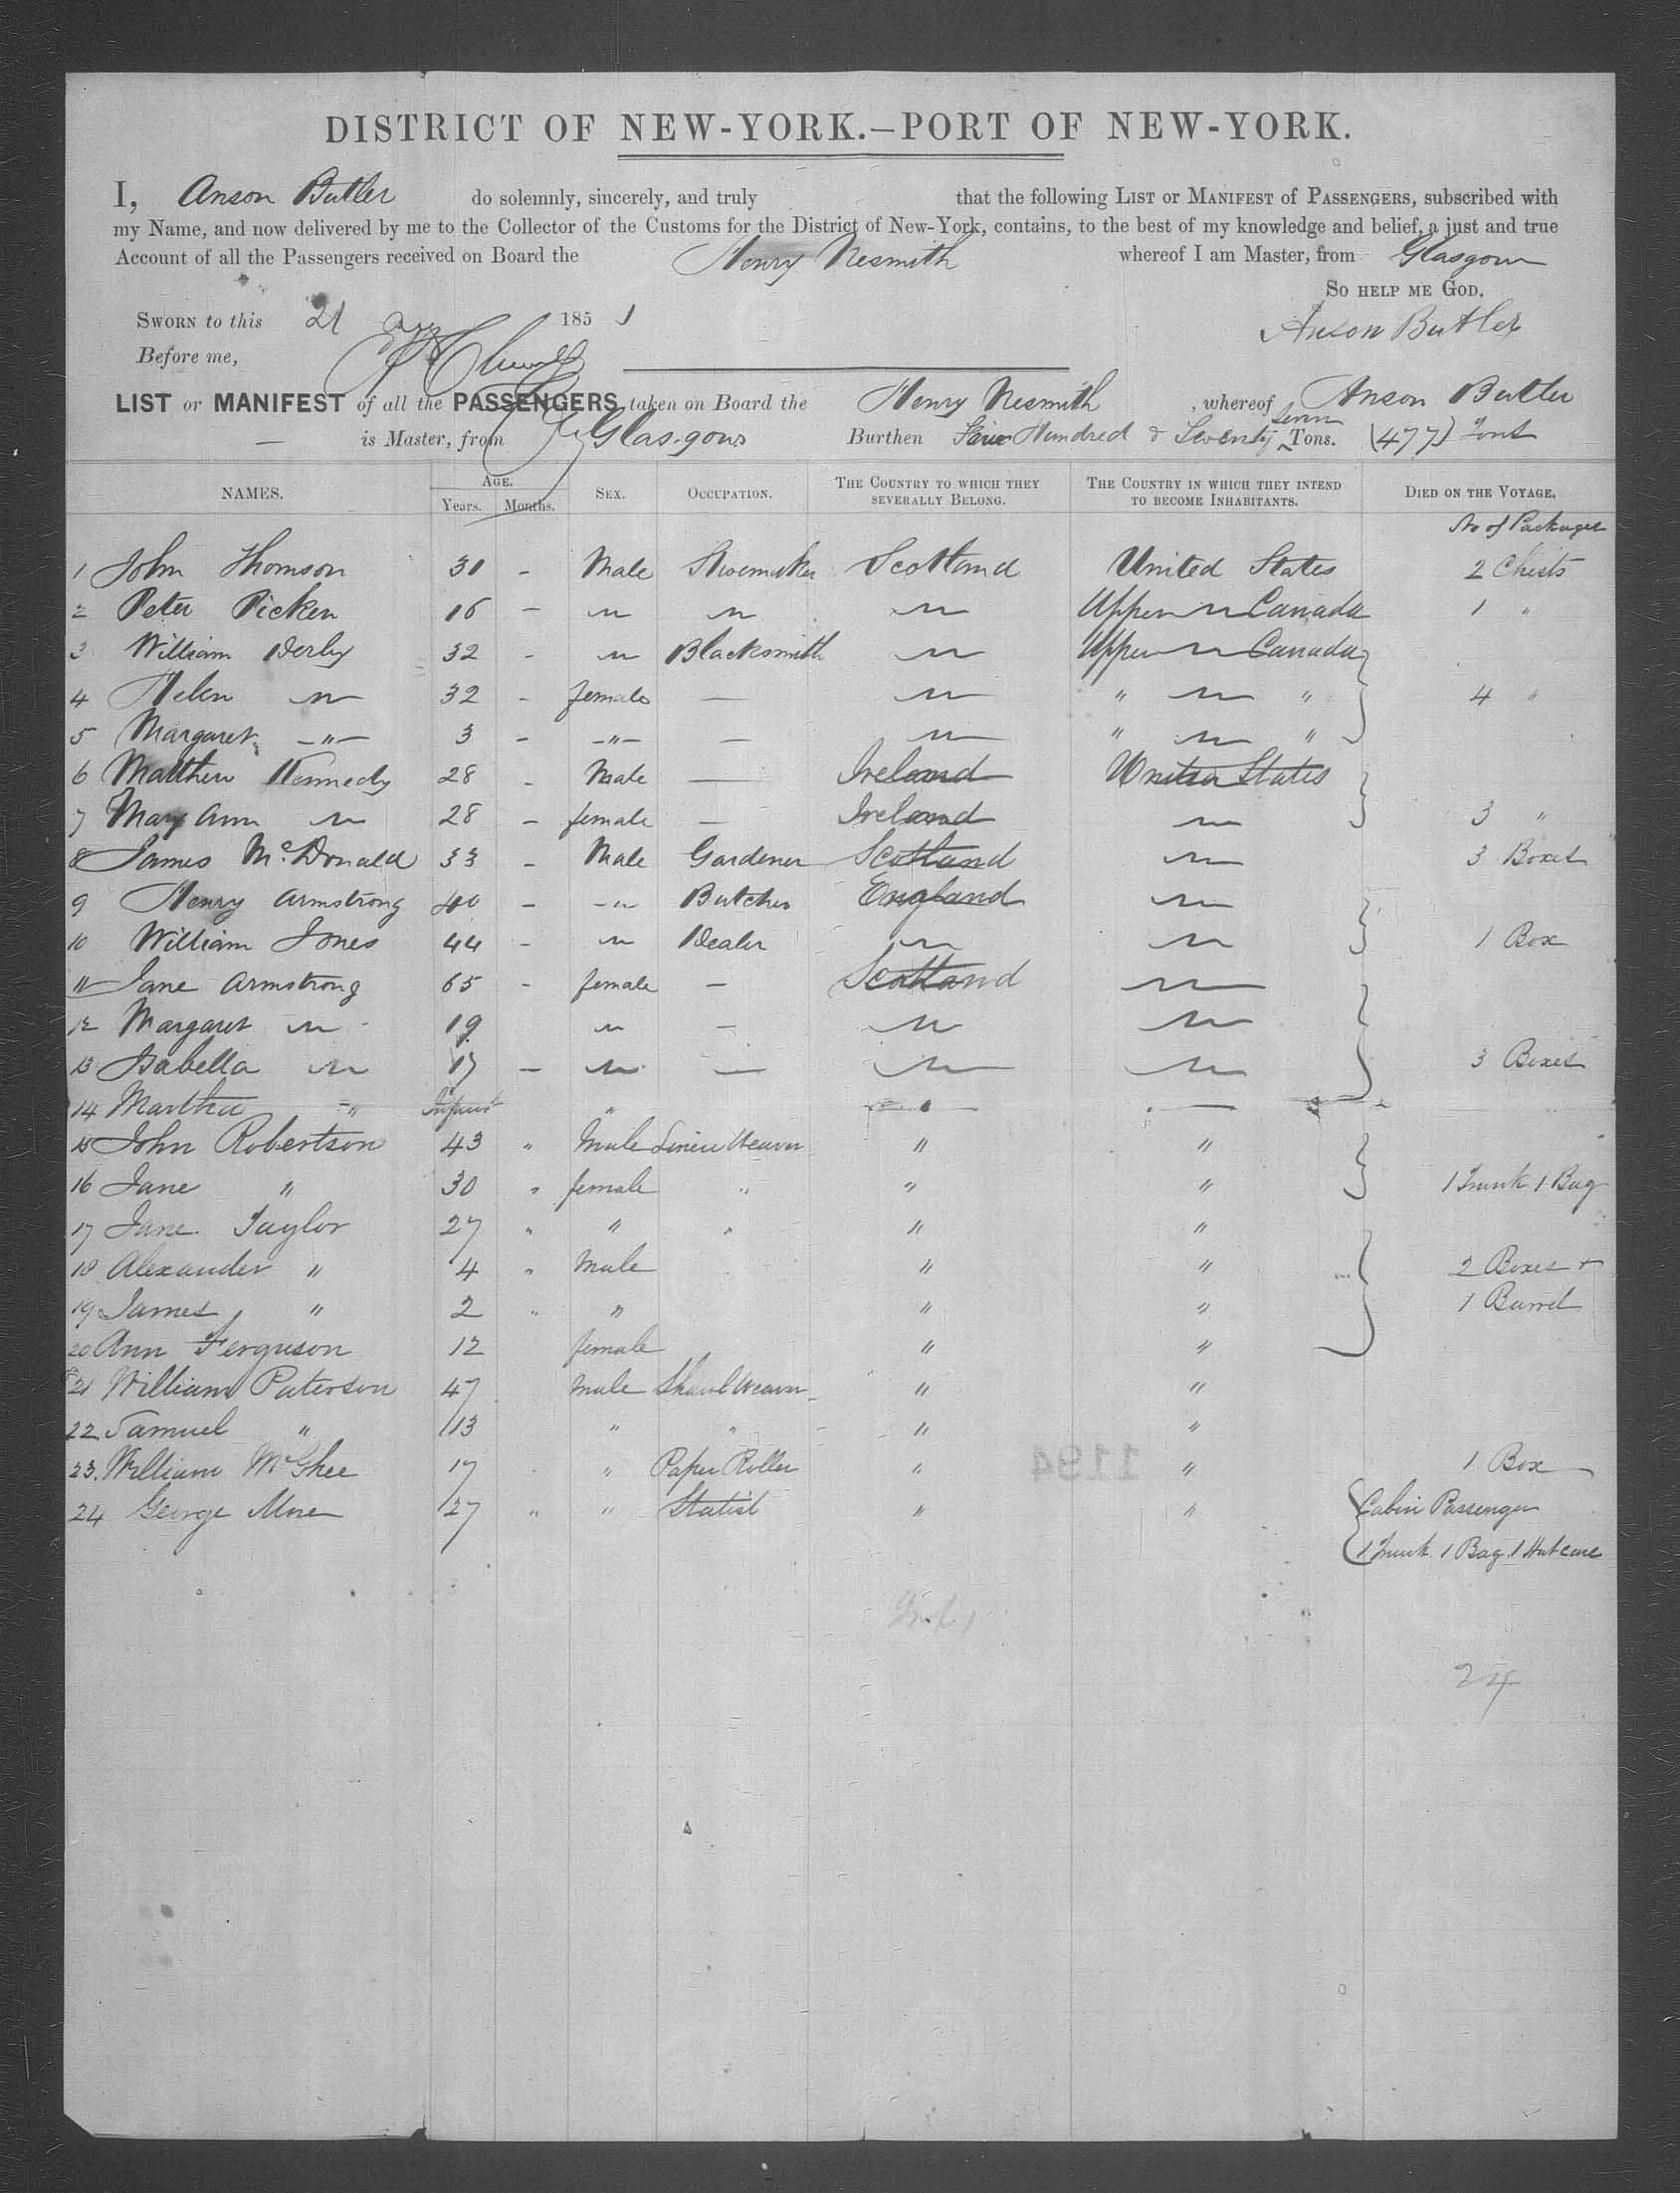 DISTRICT OF NEW-YORK.—PORT OF NEW-YORK.
I, Anson Butler do solemnly, sincerely, and truly that the following LIST or MANIFEST of PASSENGERS, subscribed with
my Name, and now delivered by me to the Collector of the Customs for the District of New-York, contains, to the best of my knowledge and belief, a just and true
Account of all the Passengers received on Board the Henry Nesmith whereof I am Master, from Glasgow
SO HELP ME GOD.
SWORN to this 21 1851
Anson Butler
Before me,
LIST or MANIFEST of all the PASSENGERS taken on Board the Henry Nesmith , whereof Anson Butler
— is Master, from Glasgow Burthen Four Hundred & Seventy seven Tons. (477) Tons
NAMES. AGE. Years. Months. SEX. OCCUPATION. THE COUNTRY TO WHICH THEY SEVERALLY BELONG. THE COUNTRY IN WHICH THEY INTEND TO BECOME INHABITANTS. DIED ON THE VOYAGE.
No of Packages
1 John Thomson 30 - Male Shoemaker Scotland United States 2 Chests
2 Peter Picken 16 - " " " Upper " Canada 1 "
3 William Derby 32 - " Blacksmith " Upper " Canada
4 Helen " 32 - female — " " " " 4 "
5 Margaret -"- 3 - -"- — " " " "
6 Matthew Kennedy 28 - Male — Ireland United States
7 Mary Ann " 28 - female — Ireland " 3 "
8 James McDonald 33 - Male Gardener Scotland " 3 Boxes
9 Henry Armstrong 40 - -"- Butcher England "
10 William Jones 44 - " Dealer " " 1 Box
11 Jane Armstrong 65 - female — Scotland "
12 Margaret " 19 " — " "
13 Isabella " 17 - " — " " 3 Boxes
14 Martha " Infant "
15 John Robertson 43 " Male Linen Weaver " "
16 Jane " 30 " female " " " 1 Trunk 1 Bag
17 Jane Taylor 27 " " " " "
18 Alexander " 4 " Male " " 2 Boxes +
19 James " 2 " " " " 1 Barrel
20 Ann Ferguson 12 female " "
21 William Paterson 47 male Shawl Weaver " "
22 Samuel " 13 " " " "
23. William McGhee 17 " Paper Roller " " 1 Box
24 George More 27 " " " " Cabin Passenger
1 Trunk 1 Bag 1 Hat case
1194
24